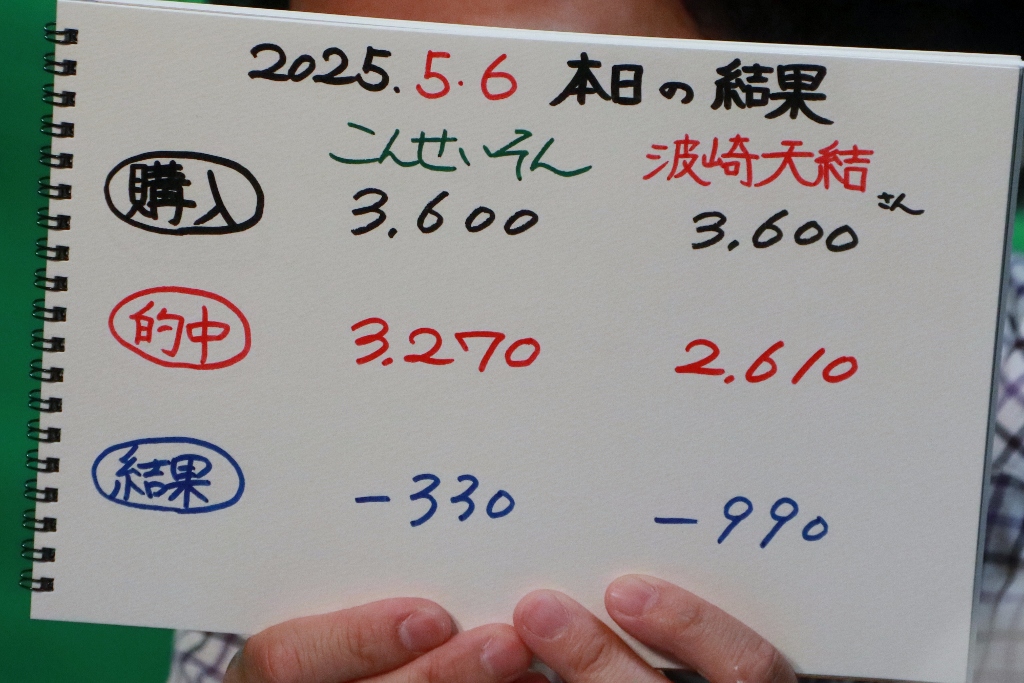 2025.5.6 本日の結果
こんせいそん 波崎天結さん
購入 3.600 3.600
的中 3.270 2.610
結果 -330 -990